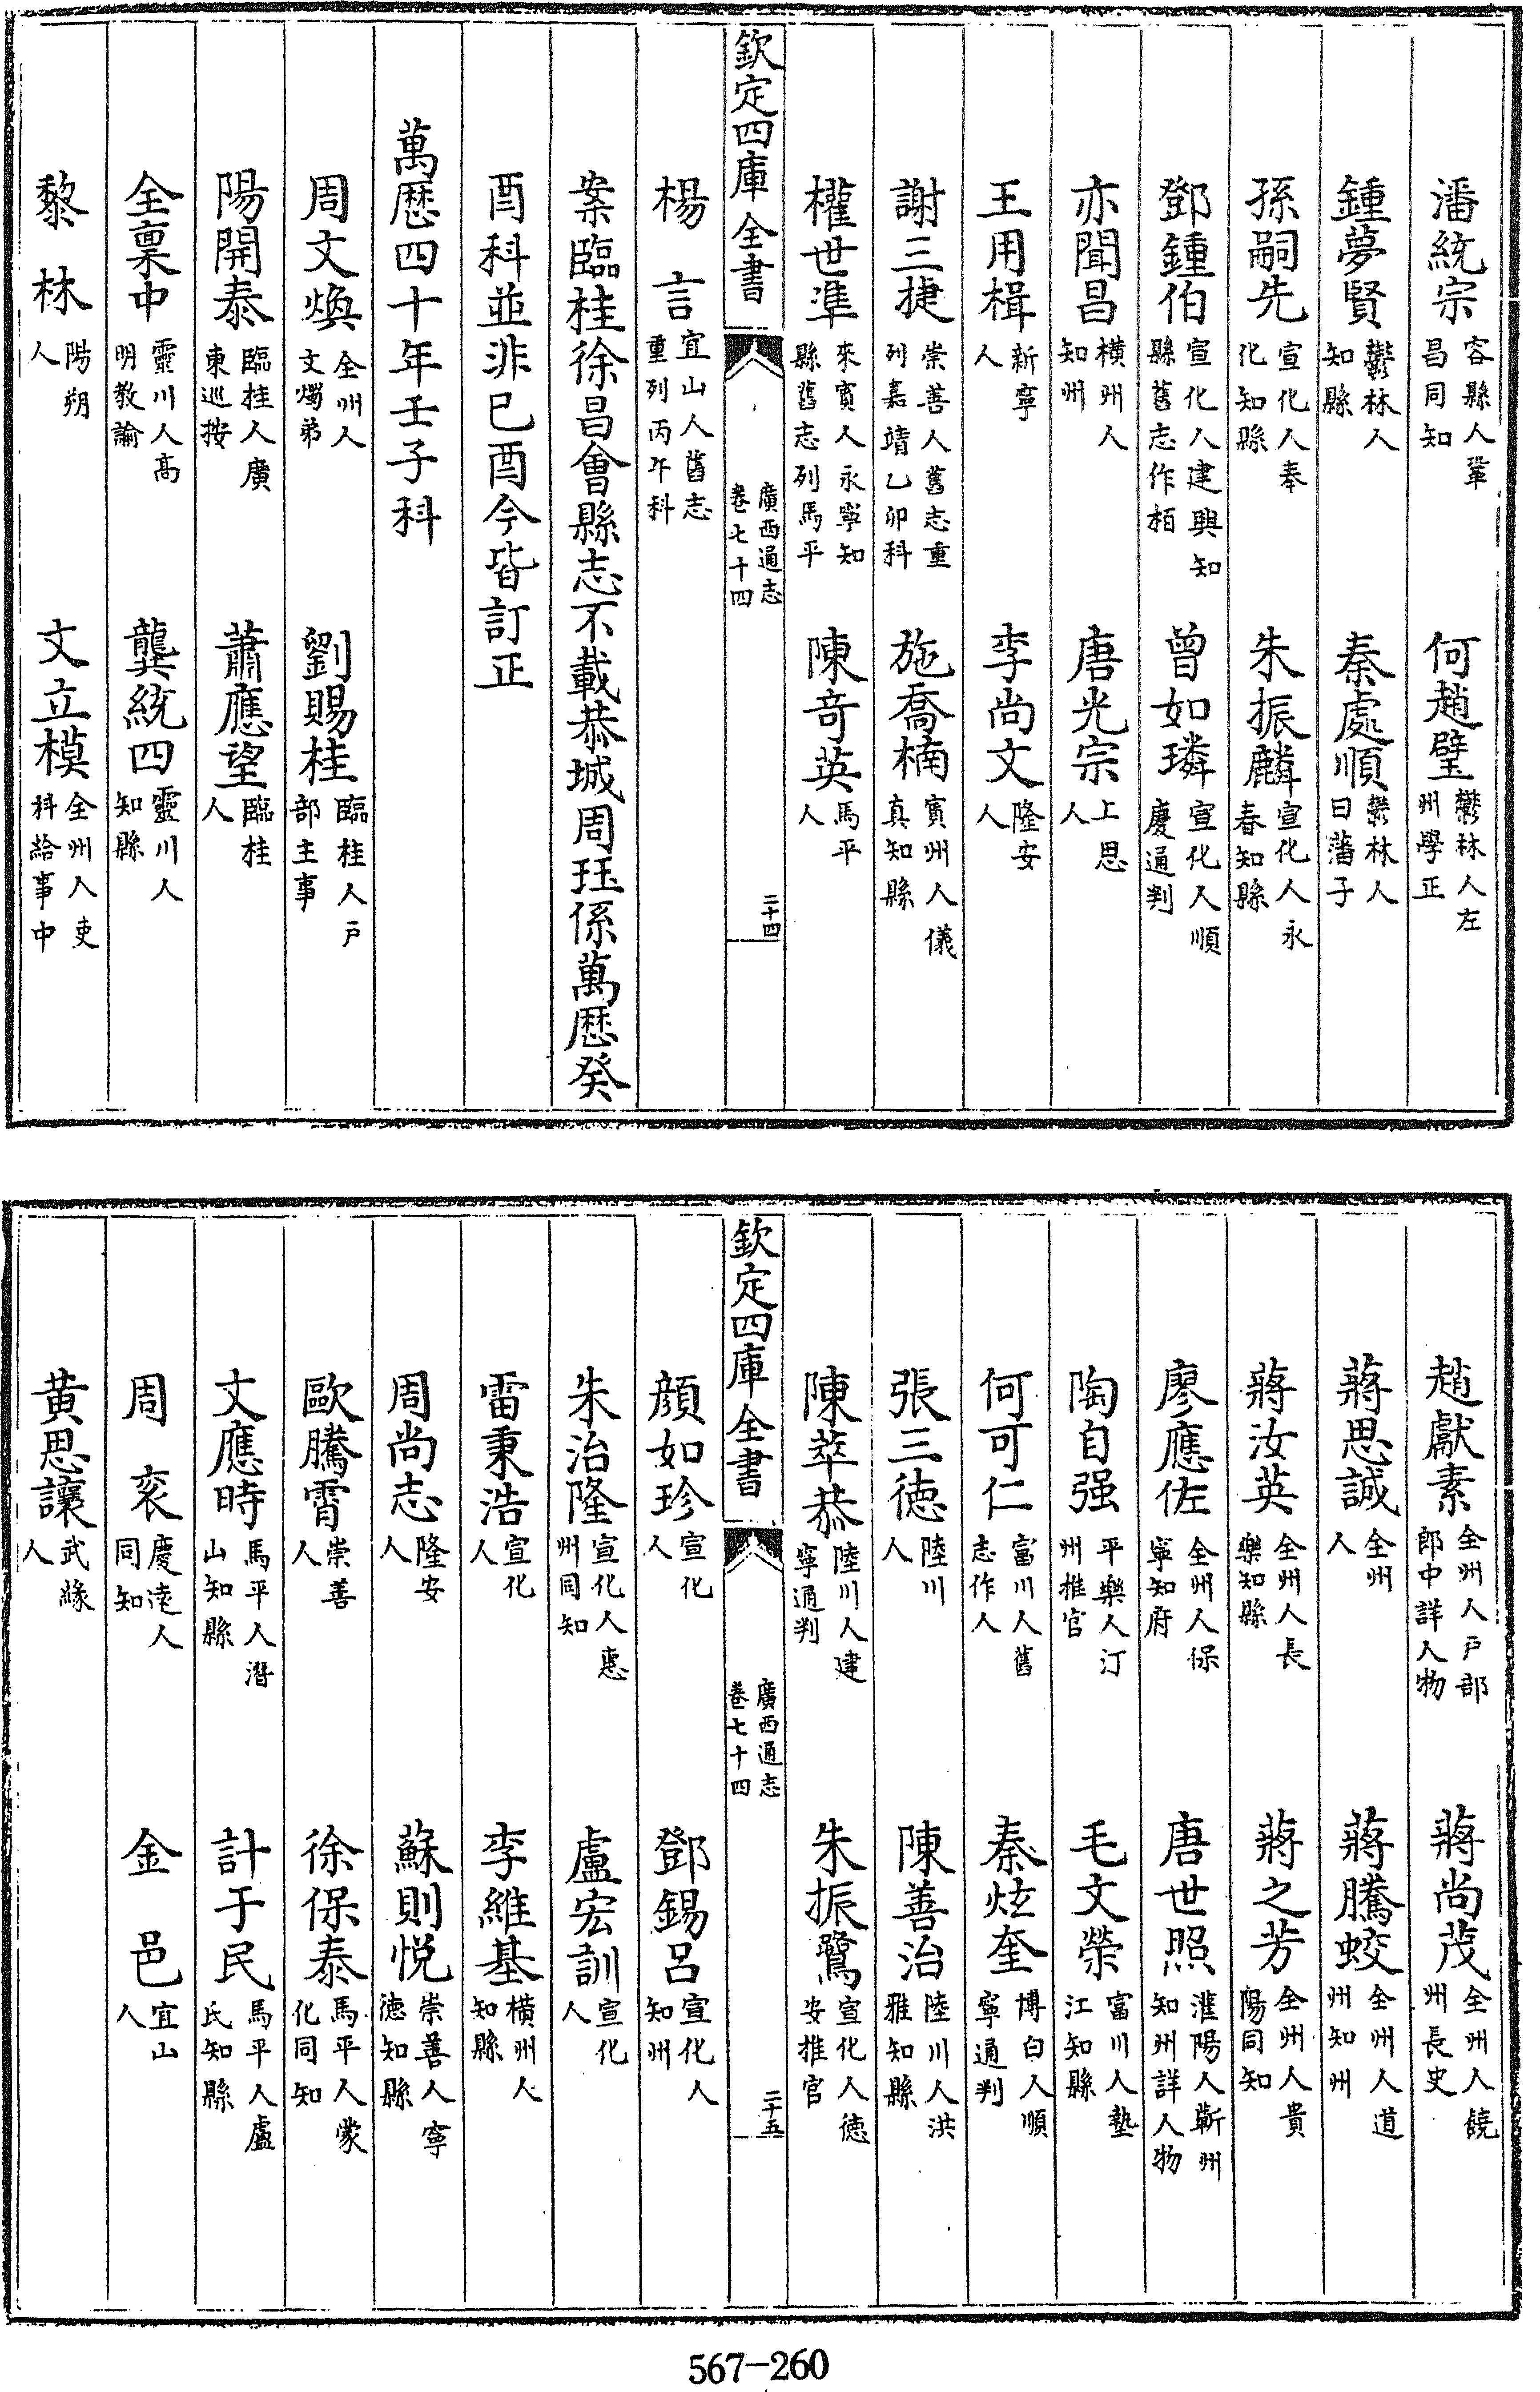 潘統宗容縣人鞏昌同知　何趙璧鬱林人左州學正
鍾夢賢鬱林人知縣　秦處順鬱林人曰藩子
孫嗣先宣化人奉化知縣　朱振麟宣化人永春知縣
鄧鍾伯宣化人建興知縣舊志作栢　曾如璘宣化人順慶通判
亦聞昌橫州人知州　唐光宗上思人
王用楫新寧人　李尚文隆安人
謝三捷崇善人舊志重列嘉靖乙卯科　施喬楠賓州人儀真知縣
權世準來賓人永寧知縣舊志列馬平　陳奇英馬平人
欽定四庫全書　廣西通志卷七十四　二十四
楊言宜山人舊志重列丙午科
案臨桂徐昌會縣志不載恭城周珏係萬歷癸
酉科並非己酉今皆訂正
萬歷四十年壬子科
周文煥全州人文燭弟　劉賜桂臨桂人户部主事
陽開泰臨桂人廣東巡按　蕭應望臨桂人
全稟中靈川人高明教諭　龔統四靈川人知縣
黎林陽朔人　文立模全州人吏科給事中
趙獻素全州人户部郎中詳人物　蔣尚茂全州人饒州長史
蔣思誠全州人　蔣騰蛟全州人道州知州
蔣汝英全州人長樂知縣　蔣之芳全州人貴陽同知
廖應佐全州人保寧知府　唐世照灌陽人蘄州知州詳人物
陶自强平樂人汀州推官　毛文榮富川人墊江知縣
何可仁富川人舊志作人　秦炫奎博白人順寧通判
張三德陸川人　陳善治陸川人洪雅知縣
陳萃恭陸川人建寧通判　朱振鷺宣化人德安推官
欽定四庫全書　廣西通志卷七十四　二十五
顔如珍宣化人　鄧錫呂宣化人知州
朱治隆宣化人惠州同知　盧宏訓宣化人
雷秉浩宣化人　李維基橫州人知縣
周尚志隆安人　蘇則悦崇善人寧德知縣
歐騰霄崇善人　徐保泰馬平人蒙化同知
文應時馬平人潛山知縣　計于民馬平人盧氏知縣
周衮慶遠人同知　金邑宜山人
黄思讓武緣人
567-260